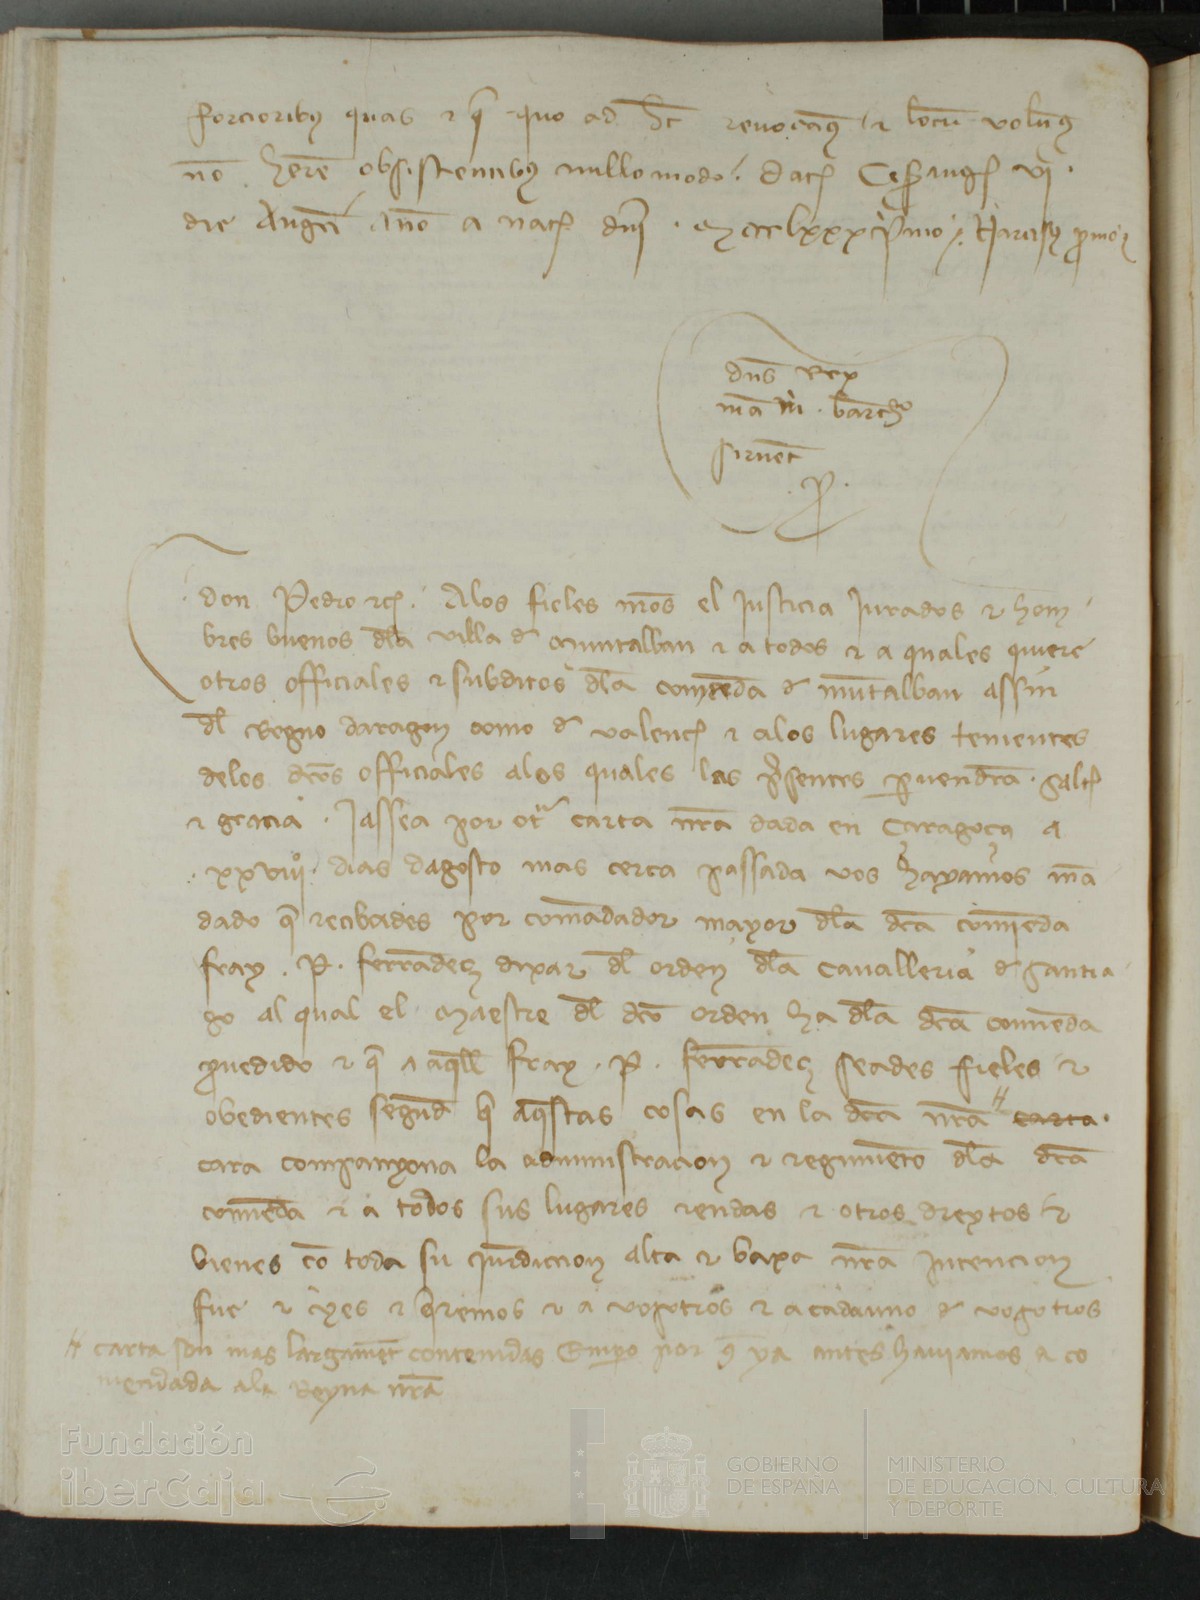 forcioribus quas et que quo ad hoc revocamus et locum volumus
no here obsistentibus nullo modo. Dat Cesaraug vi
die Augti Anno a nat dni mccclxxx primo. Narcisus promor
dns Rex
ma m. bartho
sirvent
.P.
don Pedro etc. Alos fieles nros el Justicia Jurados et hom
bres buenos dla villa de Muntalban et a todos et a quales quiere
otros officiales et subditos dla comenda de muntalban assin
dl Regno daragon como de valenc et alos lugares tenientes
delos dcos officiales alos quales las presentes pervendran. salut
et gracia. Jassea por otra carta nra dada en Caragoca a
xxviiiº. dias dagosto mas cerca passada vos hayamos man
dado que recibades por comendador mayor dla dca comenda
fray. P. ferrandeç dixar dl orden dla cavalleria de santia
go al qual el Maestre dl dco orden ha dla dca comenda
provedido et que a aquell fray. P. ferrandeç seades fieles et
obedientes segund que aquestas cosas en la dca nra # carta.
cara companyona la administracion et regimiento dla dca
comenda et a todos sus lugares rendas et otros dreytos et
bienes con toda su jurdiccion alta et baxa nra intencion
fue et yes et queremos et a vosotros et a cadauno de vosotros
# carta son mas largament contenidas Empero por que ya antes haviamos a co
mendada ala Reyna nra
Fundación
iberCaja
GOBIERNO
DE ESPAÑA
MINISTERIO
DE EDUCACIÓN, CULTURA
Y DEPORTE